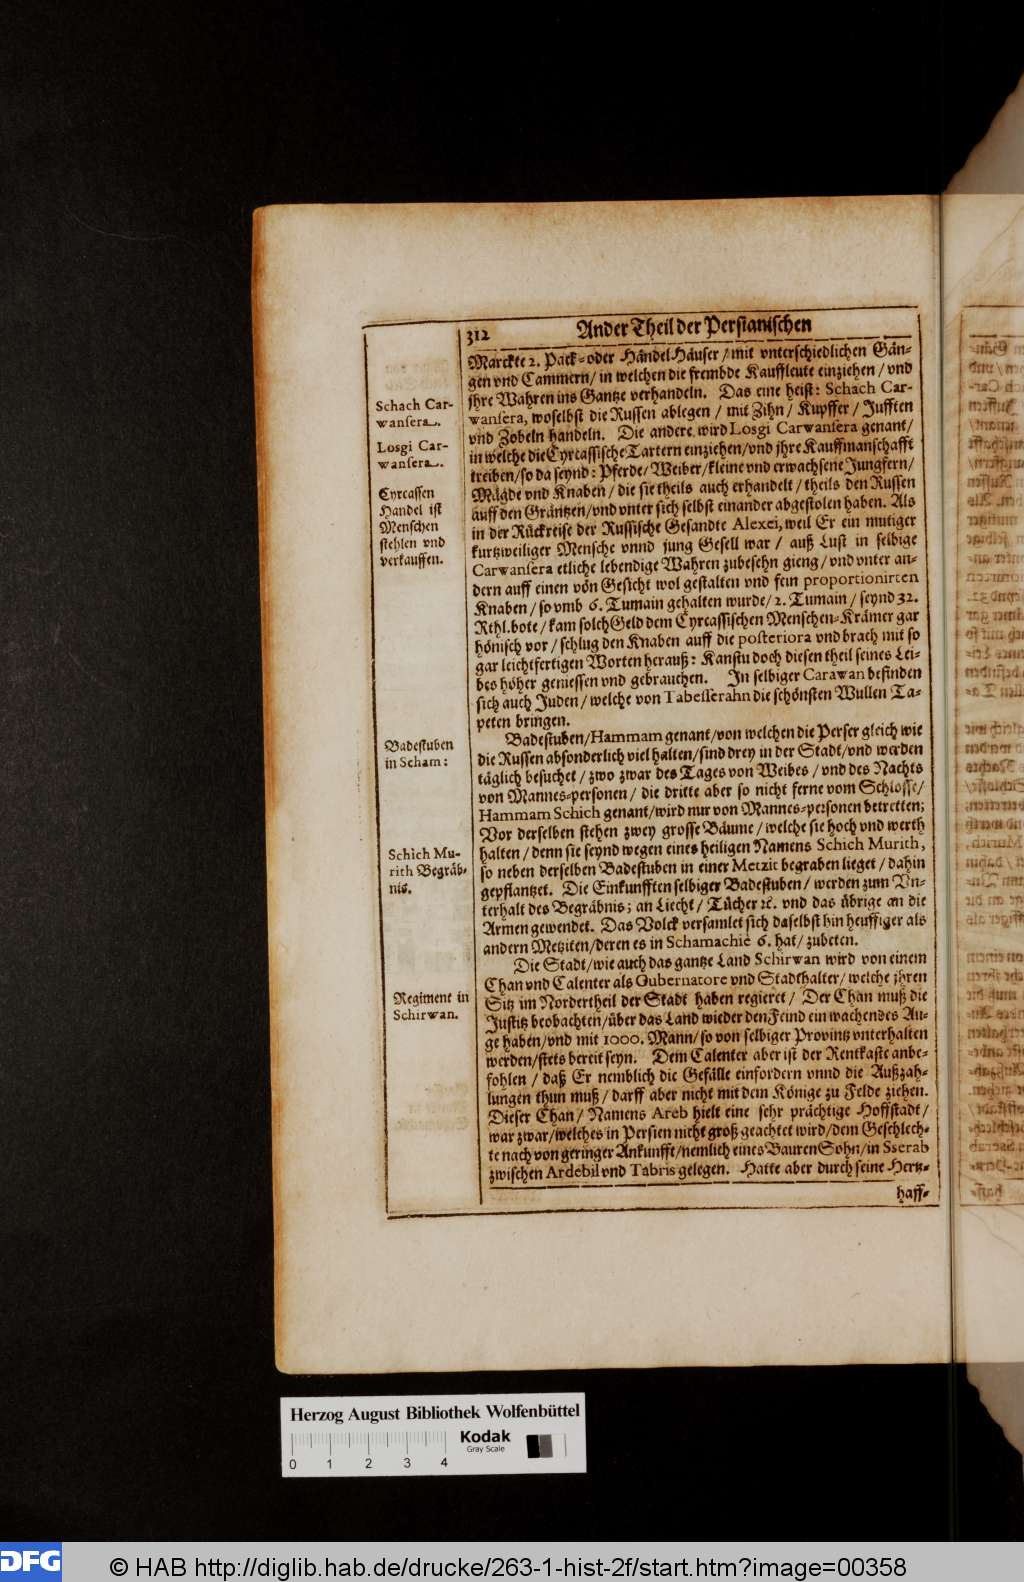 312
Ander Theil der Persianischen
Marckte 2. Pack- oder Händel Häuser / mit vnterschiedlichen Gän-
gen vnd Cammern / in welchen die frembde Kauffleute einziehen / vnd
jhre Wahren ins Gantze verhandeln. Das eine heist: Schach Car-
wansera, woselbst die Russen ablegen / mit Zihn / Kupffer / Jufften
vnd Zobeln handeln. Die andere wird Losgi Carwansera genant /
in welche die Cyrcassische Tartern einziehen / vnd jhre Kauffmanschafft
treiben / so da seynd: Pferde / Weiber / kleine vnd erwachsene Jungfern /
Mägde vnd Knaben / die sie theils auch erhandelt / theils den Russen
auff den Gräntzen / vnd vnter sich selbst einander abgestolen haben. Als
in der Rückreise der Russische Gesandte Alexei, weil Er ein mutiger
kurtzweiliger Mensche vnnd jung Gesell war / auß Lust in selbige
Carwansera etliche lebendige Wahren zubesehn gieng / vnd vnter an-
dern auff einen von Gesicht wol gestalten vnd fein proportionirten
Knaben / so vmb 6. Tumain gehalten wurde / 2. Tumain / seynd 32.
Rthl. bote / kam solch Geld dem Cyrcassischen Menschen-Krämer gar
hönisch vor / schlug den Knaben auff die posteriora vnd brach mit so
gar leichtfertigen Worten herauß: Kanstu doch diesen theil seines Lei-
bes höher geniessen vnd gebrauchen. In selbiger Carawan befinden
sich auch Juden / welche von Tabesserahn die schönsten Wullen Ta-
peten bringen.
Badestuben / Hammam genant / von welchen die Perser gleich wie
die Russen absonderlich viel halten / sind drey in der Stadt / vnd werden
täglich besuchet / zwo zwar des Tages von Weibes / vnd des Nachts
von Mannes-personen / die dritte aber so nicht ferne vom Schlosse /
Hammam Schich genant / wird nur von Mannes-personen betretten;
Vor derselben stehen zwey grosse Bäume / welche sie hoch vnd werth
halten / denn sie seynd wegen eines heiligen Namens Schich Murith,
so neben derselben Badestuben in einer Metzit begraben lieget / dahin
gepflantzet. Die Einkunfften selbiger Badestuben / werden zum Vn-
terhalt des Begräbnis; an Liecht / Tücher ꝛc. vnd das übrige an die
Armen gewendet. Das Volck versamlet sich daselbst hin heuffiger als
andern Metziten / deren es in Schamachie 6. hat / zubeten.
Die Stadt / wie auch das gantze Land Schirwan wird von einem
Chan vnd Calenter als Gubernatore vnd Stadthalter / welche jhren
Sitz im Nordertheil der Stadt haben regieret / Der Chan muß die
Justitz beobachten / über das Land wieder den Feind ein wachendes Au-
ge haben / vnd mit 1000. Mann / so von selbiger Provintz vnterhalten
werden / stets bereit seyn. Dem Calenter aber ist der Rentkaste anbe-
fohlen / daß Er nemblich die Gefälle einfordern vnnd die Außzah-
lungen thun muß / darff aber nicht mit dem Könige zu Felde ziehen.
Dieser Chan / Namens Areb hielt eine sehr prächtige Hoffstadt /
war zwar / welches in Persien nicht groß geachtet wird / dem Geschlech-
te nach von geringer Ankunfft / nemlich eines Bauren Sohn / in Sserab
zwischen Ardebil vnd Tabris gelegen. Hatte aber durch seine Hertz-
haff-
Schach Car-
wansera.
Losgi Car-
wansera.
Cyrcassen
Handel ist
Menschen
stehlen vnd
verkauffen.
Badestuben
in Scham:
Schich Mu-
rith Begräb-
nis.
Regiment in
Schirwan.
Herzog August Bibliothek Wolfenbüttel
Kodak
Gray Scale
0 1 2 3 4
DFG
© HAB http://diglib.hab.de/drucke/263-1-hist-2f/start.htm?image=00358